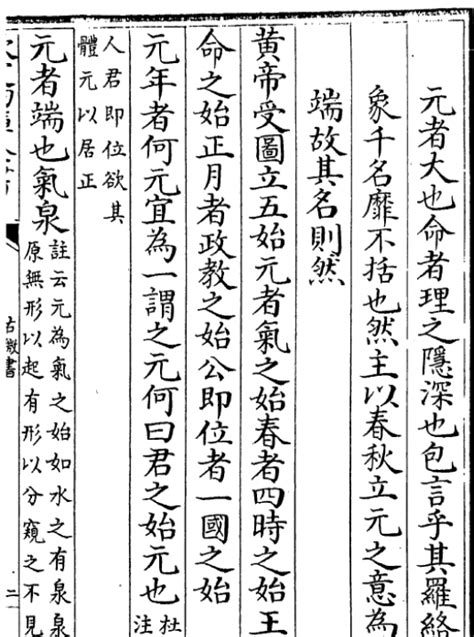 元者大也命者理之隱深也包言乎其羅絡
象千名靡不括也然主以春秋立元之意為
端故其名則然
黄帝受圖立五始元者氣之始春者四時之始王
命之始正月者政教之始公即位者一國之始
元年者何元宜為一謂之元何曰君之始元也
杜注
人君即位欲其
體元以居正
元者端也氣泉
註云元為氣之始如水之有泉泉
原無形以起有形以分窺之不見
古微書
二